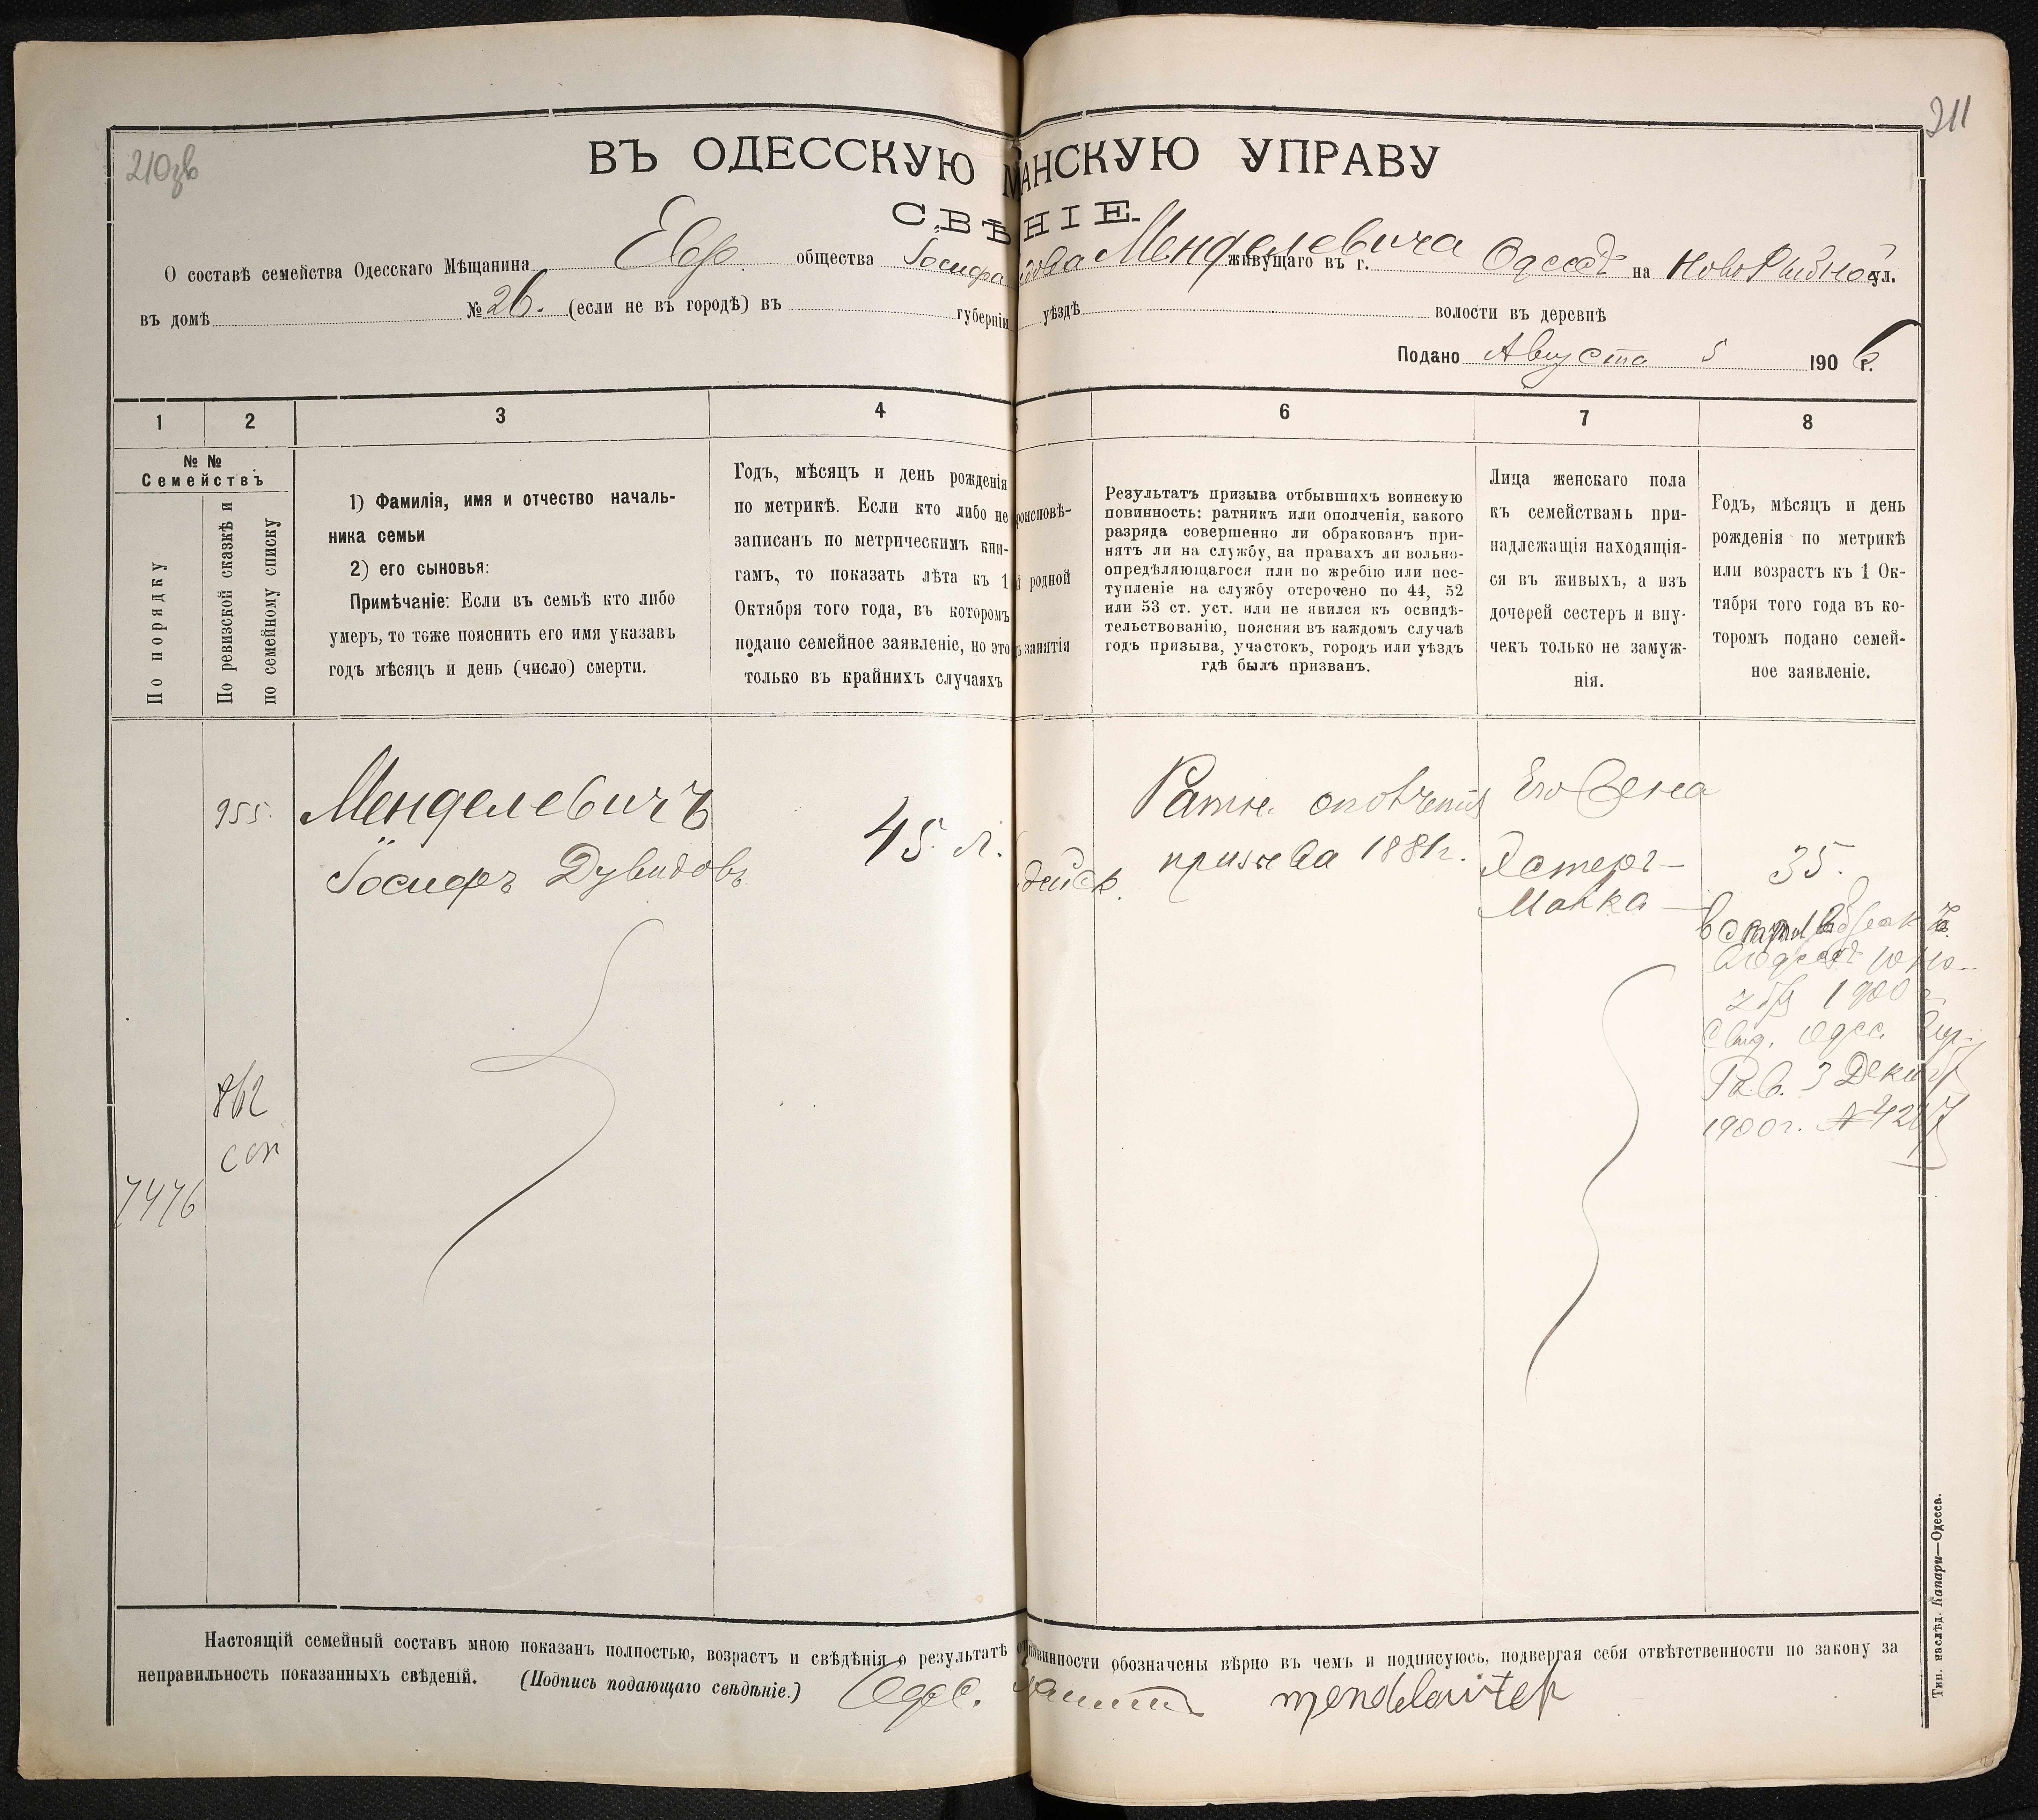 211
210зв
ВЪ ОДЕССКУЮ МѢЩАНСКУЮ УПРАВУ
СВѢ НІЕ.
О составѣ семейства Одесскаго Мѣщанина Евр. общества Іосифа дова Менделевича живущаго въ г. Одессѣ на НовоРыбной ул.
въ домѣ № 26. (если не въ городѣ) въ губерніи уѣздѣ волости въ деревнѣ
Подано Августа 5 1906 г.
1 2 3 4 6 7 8
№ №
Семействъ
По порядку
По ревизской сказкѣ и
по семейному списку
1) Фамилія, имя и отчество началь-
ника семьи
2) его сыновья:
Примѣчаніе: Если въ семьѣ кто либо
умеръ, то тоже пояснить его имя указавъ
годъ мѣсяцъ и день (число) смерти.
Годъ, мѣсяцъ и день рожденія
по метрикѣ. Если кто либо не
записанъ по метрическимъ кни-
гамъ, то показать лѣта къ 1
Октября того года, въ которомъ
подано семейное заявленіе, но это
только въ крайнихъ случаяхъ
роисповѣ-
родной
занятія
Результатъ призыва отбывшихъ воинскую
повинность: ратникъ или ополченія, какого
разряда совершенно ли обракованъ при-
нятъ ли на службу, на правахъ ли вольно-
опредѣляющагося или по жребію или пос-
тупленіе на службу отсрочено по 44, 52
или 53 ст. уст. или не явился къ освидѣ-
тельствованію, поясняя въ каждомъ случаѣ
годъ призыва, участокъ, городъ или уѣздъ
гдѣ былъ призванъ.
Лица женскаго пола
къ семействамъ при-
надлежащія находящія-
ся въ живыхъ, а изъ
дочерей сестеръ и вну-
чекъ только не замуж-
нія.
Годъ, мѣсяцъ и день
рожденія по метрикѣ
или возрастъ къ 1 Ок-
тября того года въ ко-
торомъ подано семей-
ное заявленіе.
955.
Менделевичъ
Іосифъ Дувидовъ
45 л.
дейск.
Ратн. ополченія
призыва 1881г.
Его Жена
Эстеръ-
Малка —
35.
вступил. въ бракъ
въ Одессѣ 10 Но-
ября 1900 г.
Свид. Одес. Гор.
Рав. 3 Декабр
1900г. № 4217
762
7476
Настоящій семейный составъ мною показанъ полностью, возрастъ и свѣдѣнія о результатѣ повинности обозначены вѣрно въ чемъ и подписуюсь, подвергая себя отвѣтственности по закону за
неправильность показанныхъ свѣденій. (Подпись подающаго свѣдѣніе.) Одес. Mendelewitch
Тип. наслѣд. Капари—Одесса.